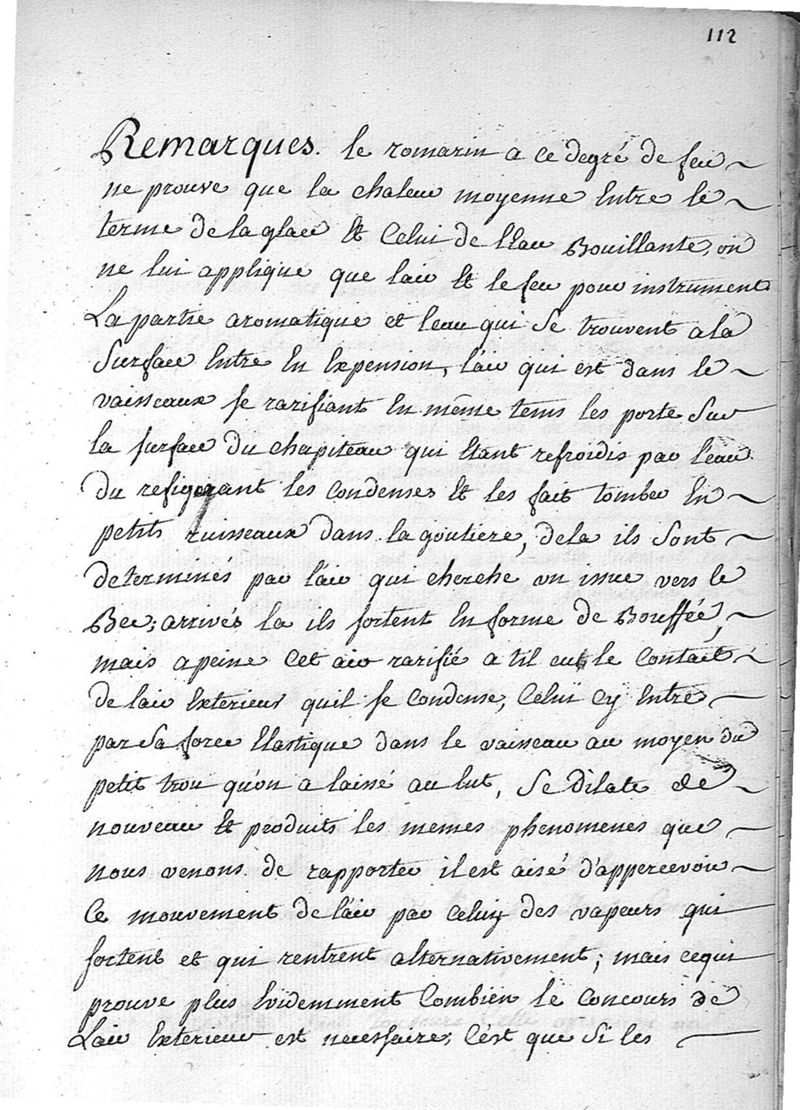 112
Remarques. le romarin a ce degré de feu
ne prouve que la chaleur moyenne Entre le
terme de la glace Et Celui de l'Eau Bouillante, on
ne lui applique que l'air Et le feu pour instruments
La partie aromatique et l'eau qui Se trouvent a la
Surface Entre En Expension, l'air qui est dans le
vaisseaux se rarifiant En même tems les porte Sur
la surface du chapiteau qui Etant refroidis par l'eau
du refigerant les Condenses Et les fait tomber En
petits ruisseaux dans la goutiere, dela ils Sont
determinés par l'air qui cherche un issue vers le
Bec; arrivés la ils sortent En forme de Bouffée,
mais a peine Cet air rarifié a til eut le Contact
de l'air Exterieur quil se Condense, Celui Cy Entre
par Sa force Elastique dans le vaisseau au moyen du
petit trou qu'on a laissé au lut, Se dilate de
nouveau Et produits les memes phenomenes que
nous venons de rapporter il est aisé d'appercevoir
Ce mouvement de l'air par Celuy des vapeurs qui
sortent et qui rentrent alternativement; mais cequi
prouve plus Evidemment Combien le Concours de
L'air Exterieur est necessaire, C'est que Si les